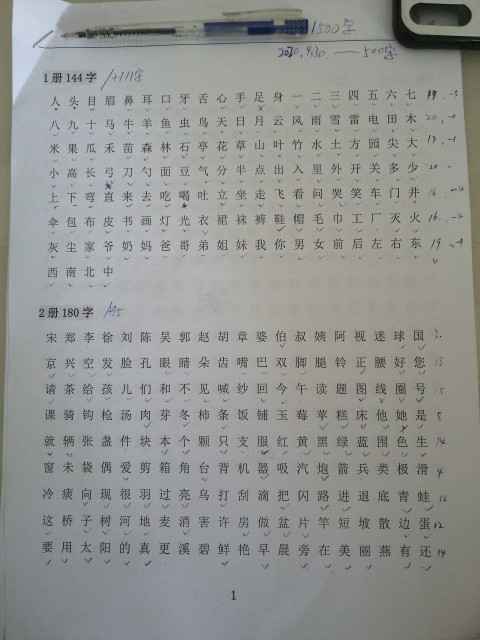 1500字
2020.4.30.—500字
1册144字 /+111字
人头目眉鼻耳口牙舌心手足身一二三四五六七 19 -3
八九十马牛羊鱼虫鸟天日月云风雨雪雷电田木 20 -0
米果瓜禾苗森林石亭花草山叶竹水土方园尖大 19 -1
小高长弓刀勺面豆气分半点出入里外开关多少 20 -
上下弯直来去吃喝吐立坐走飞看问哭笑车门井 16 -4
伞包布皮书画灯光衣裙袜裤鞋帽毛巾工厂灭火 16 -4
灰尘家爷奶妈爸哥弟姐妹我你男女前后左右东 19 -1
西南北中
2册180字 175
宋郑李徐刘陈吴郭赵胡章婆伯叔姨阿视迷球国
京兴空发脸孔眼睛朵齿嘴巴双脚腿铃正腰好您
请茶给孩儿们和不见喊纱回今午读题图线圈号 15
课骑钩枪汤肉芽冬柿条饭铺玉莓苹糕床他她是 8
就辆张盏件块本个颗只支服红黄黑绿蓝围色生 14
窗未袋偶爱剪箱角台背机器吸汽炮箭兵类极滑 4
冷痰向现很羽过亮乌打刮滴把闪路进退底青蛙 12
这桥子树河地麦消害许房做盆片竿短坡散边蛋 12
要用太阳的真更溪碧鲜艳早晨旁在美丽燕有还 14
1